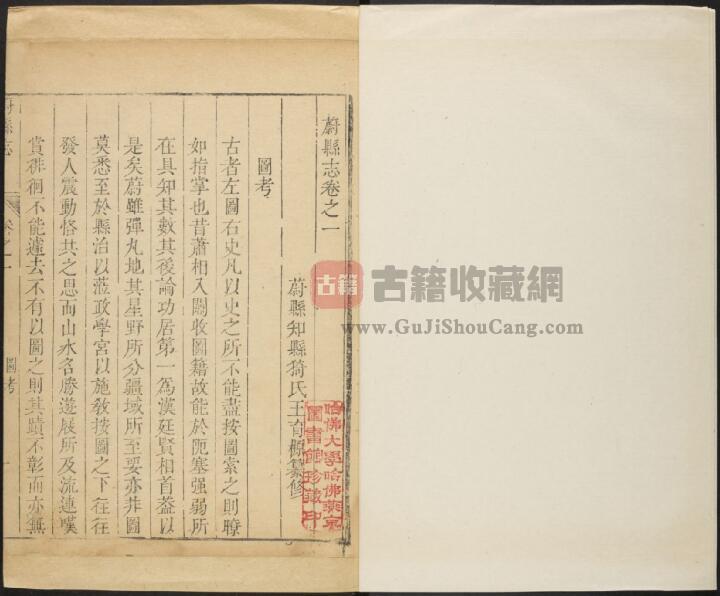 蔚縣志卷之一
蔚縣知縣猗氏王育橞纂修
圖考
古者左圖右史凡以史之所不能盡按圖索之則瞭
如指掌也昔蕭相入關收圖籍故能於阨塞强弱所
在具知其數其後論功居第一為漢廷賢相首葢以
是矣蔚雖彈丸地其星野所分疆域所至要亦非圖
莫悉至於縣治以蒞政學宮以施敎按圖之下往往
發人震動恪共之思而山水名勝遊展所及流連嘆
賞徘徊不能遽去不有以圖之則其蹟不彰而亦無
蔚縣志
卷之一
圖考
哈佛大學哈佛燕京
圖書館珍藏印
古籍
古籍收藏網
www.GuJiShouCang.com